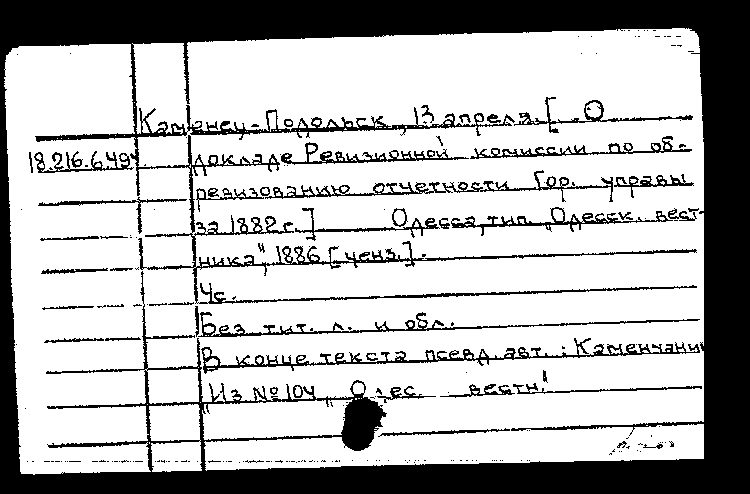 Каменец-Подольск, 13 апреля. [ О
18.216.6.494. докладе Ревизионной комиссии по об-
ревизованию отчетности Гор. управы
за 1882 г.] Одесса, тип. „Одесск. вест-
ника", 1886 [ценз.].
4с.
Без тит. л. и обл.
В конце текста псевд. авт.: Каменчанин
„Из № 104 „Одес. вестн."